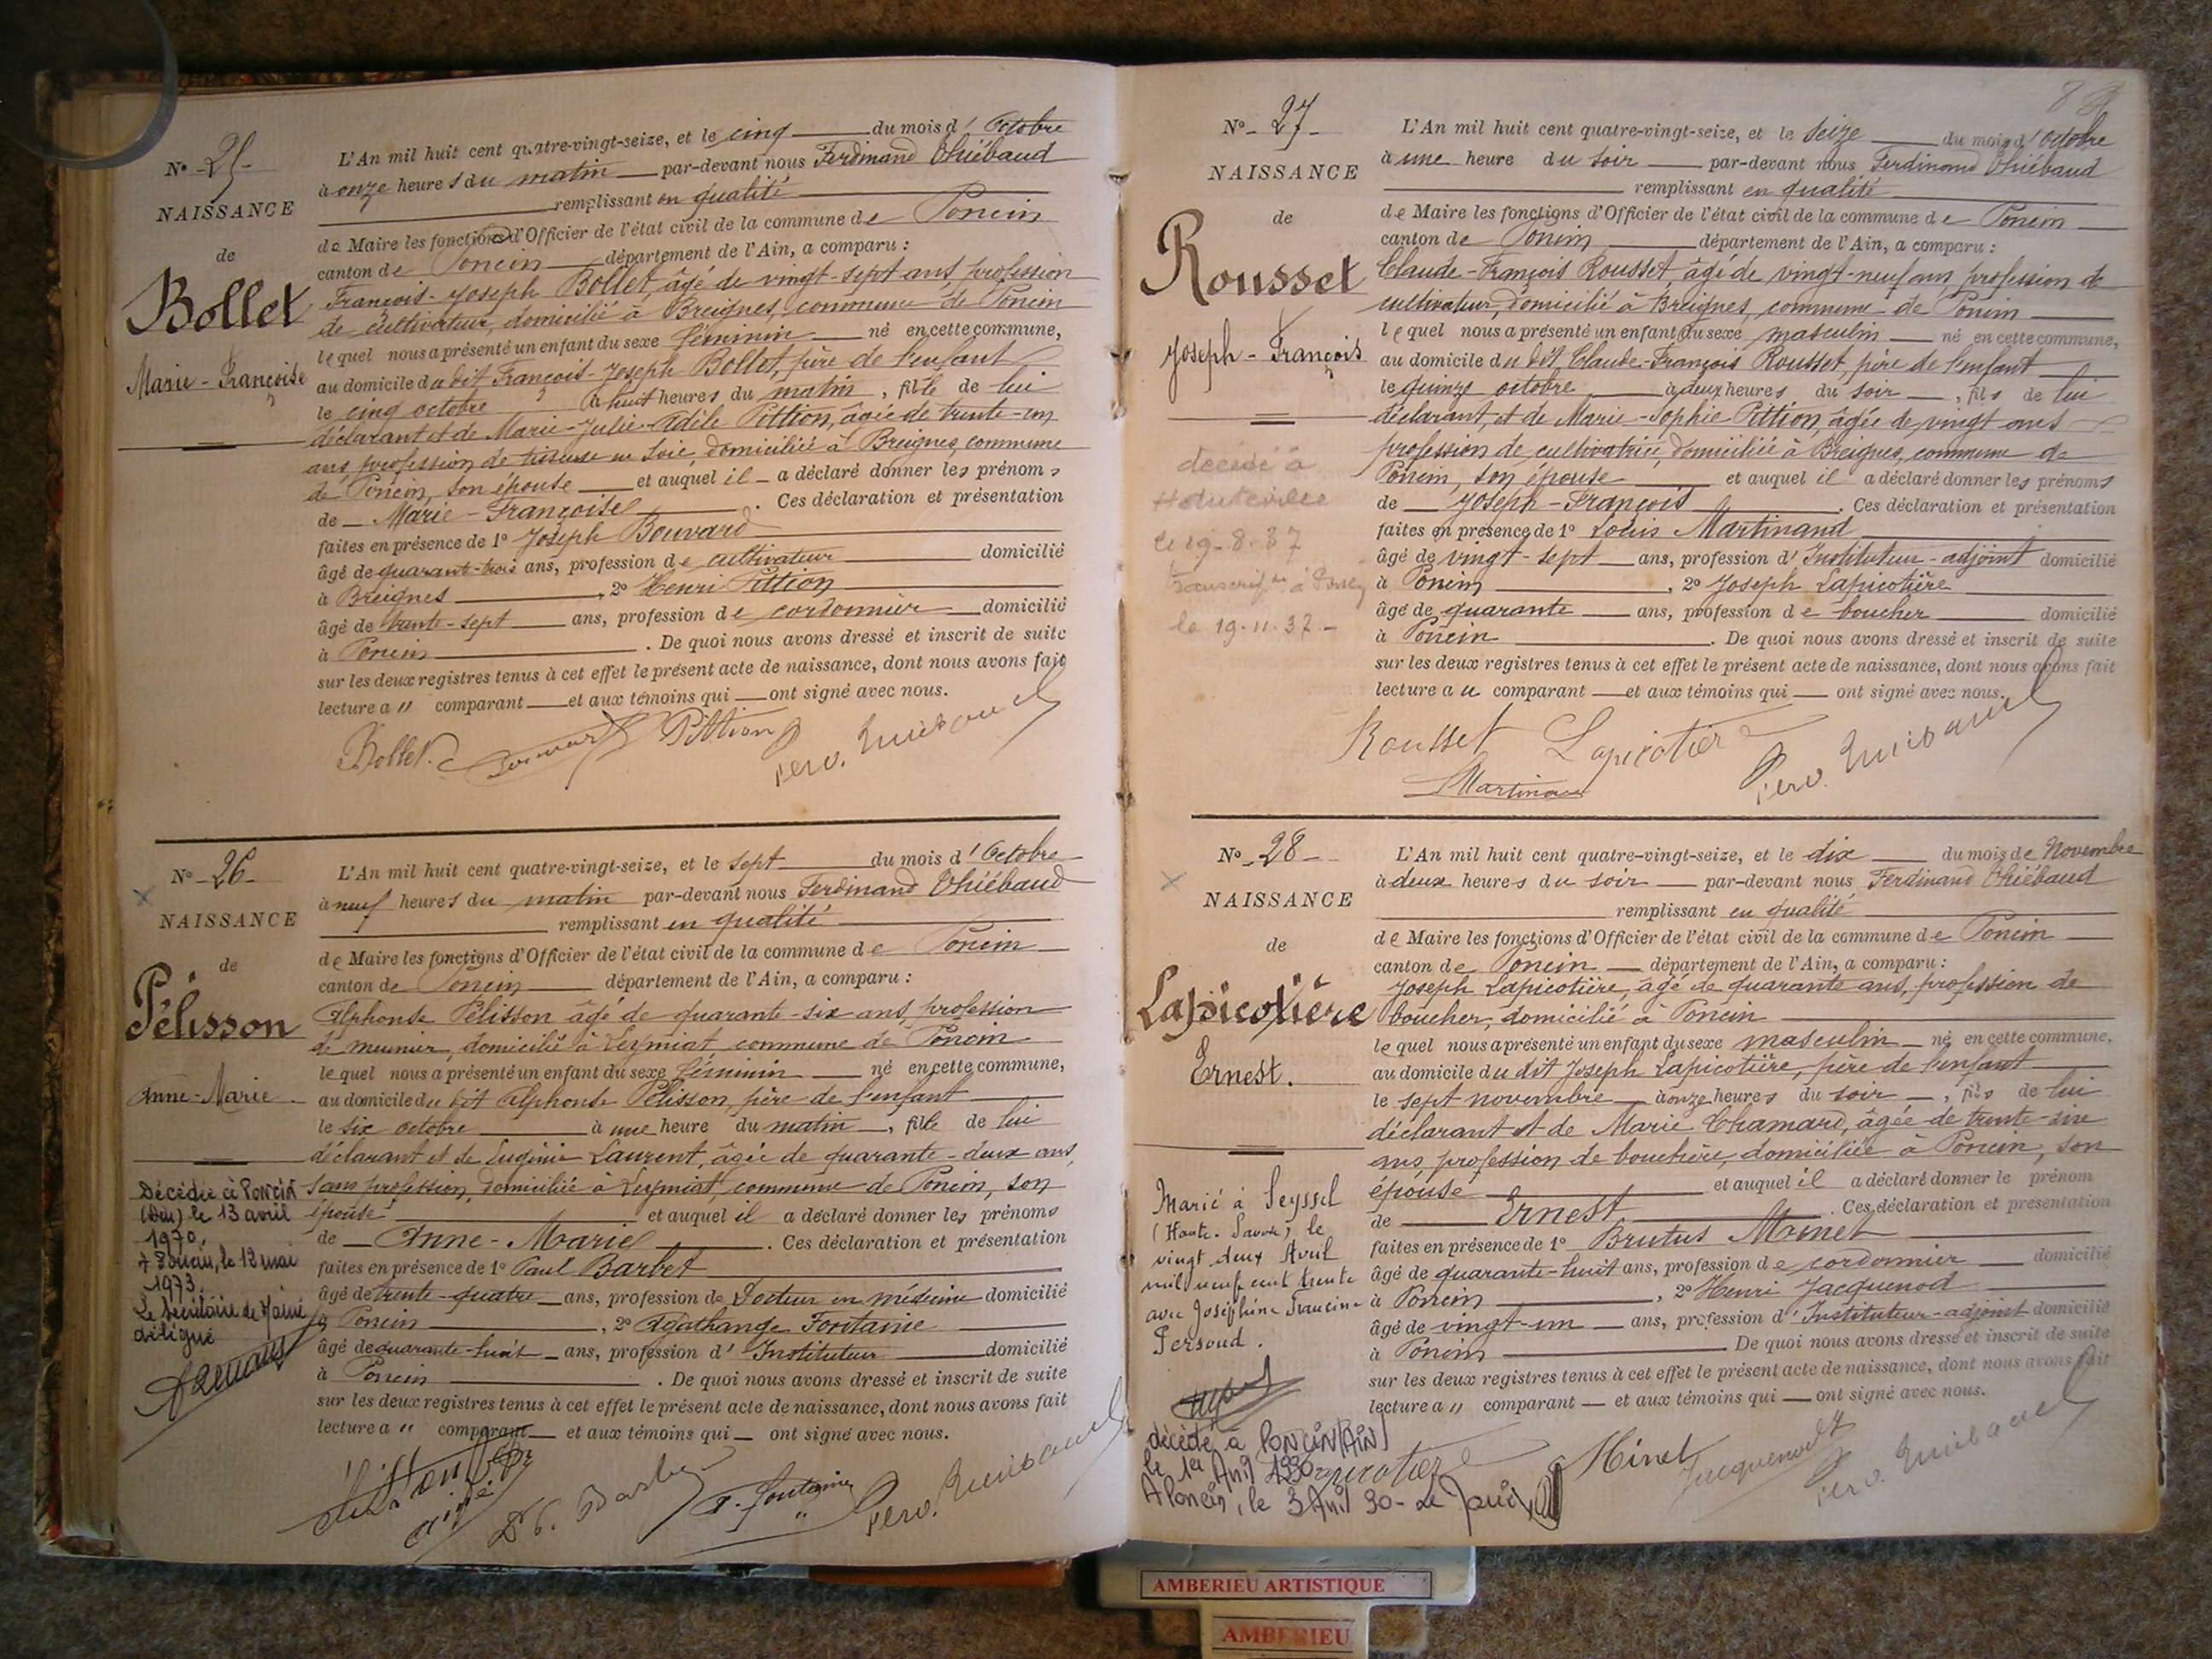 N° 25
NAISSANCE
de
Bollet
Marie-Françoise
L'An mil huit cent quatre-vingt-seize, et le cinq du mois d'Octobre
à onze heures du matin par-devant nous Ferdinand Thiébaud
remplissant en qualité
de Maire les fonctions d'Officier de l'état civil de la commune de Poncin
canton de Poncin département de l'Ain, a comparu :
François-Joseph Bollet, âgé de vingt-sept ans, profession
de cultivateur, domicilié à Breignes, commune de Poncin
lequel nous a présenté un enfant du sexe féminin né en cette commune,
au domicile du dit François-Joseph Bollet, père de l'enfant
le cinq octobre à huit heures du matin, fille de lui
déclarant et de Marie-Julie-Adèle Pittion, âgée de trente-un
ans, profession de tisseuse en soie, domiciliée à Breignes, commune
de Poncin, son épouse et auquel il a déclaré donner les prénoms
de Marie-Françoise. Ces déclaration et présentation
faites en présence de 1° Joseph Bouvard
âgé de quarante-trois ans, profession de cultivateur domicilié
à Breignes, 2° Henri Pittion
âgé de trente-sept ans, profession de cordonnier domicilié
à Poncin. De quoi nous avons dressé et inscrit de suite
sur les deux registres tenus à cet effet le présent acte de naissance, dont nous avons fait
lecture au comparant et aux témoins qui ont signé avec nous.
Bollet Bouvard Pittion
Ferd. Thiébaud
N° 26
NAISSANCE
de
Pélisson
Anne-Marie
Décédée à Poncin
(Ain) le 13 avril
1970.
à Poncin, le 12 mai
1973
Le Secrétaire de Mairie
délégué
L'An mil huit cent quatre-vingt-seize, et le sept du mois d'Octobre
à neuf heures du matin par-devant nous Ferdinand Thiébaud
remplissant en qualité
de Maire les fonctions d'Officier de l'état civil de la commune de Poncin
canton de Poncin département de l'Ain, a comparu :
Alphonse Pélisson âgé de quarante-six ans, profession
de meunier, domicilié à Leymiat, commune de Poncin
lequel nous a présenté un enfant du sexe féminin né en cette commune,
au domicile du dit Alphonse Pélisson, père de l'enfant
le six octobre à une heure du matin, fille de lui
déclarant et de Eugénie Laurent, âgée de quarante-deux ans,
sans profession, domiciliée à Leymiat, commune de Poncin, son
épouse et auquel il a déclaré donner les prénoms
de Anne-Marie. Ces déclaration et présentation
faites en présence de 1° Paul Barbet
âgé de trente-quatre ans, profession de Docteur en médecine domicilié
à Poncin, 2° Agathange Fontaine
âgé de quarante-huit ans, profession d'Instituteur domicilié
à Poncin. De quoi nous avons dressé et inscrit de suite
sur les deux registres tenus à cet effet le présent acte de naissance, dont nous avons fait
lecture au comparant et aux témoins qui ont signé avec nous.
Pélisson aîné Dr P. Barbet A. Fontaine Ferd. Thiébaud
N° 27
NAISSANCE
de
Rousset
Joseph-François
décédé à
Hauteville
le 19-8-37
le 19.11.37
L'An mil huit cent quatre-vingt-seize, et le seize du mois d'octobre
à une heure du soir par-devant nous Ferdinand Thiébaud
remplissant en qualité
de Maire les fonctions d'Officier de l'état civil de la commune de Poncin
canton de Poncin département de l'Ain, a comparu :
Claude-François Rousset, âgé de vingt-neuf ans, profession de
cultivateur, domicilié à Breignes, commune de Poncin
lequel nous a présenté un enfant du sexe masculin né en cette commune,
au domicile du dit Claude-François Rousset, père de l'enfant
le quinze octobre à deux heures du soir, fils de lui
déclarant, et de Marie-Sophie Pittion, âgée de vingt ans
profession de cultivatrice, domiciliée à Breignes, commune de
Poncin, son épouse et auquel il a déclaré donner les prénoms
de Joseph-François. Ces déclaration et présentation
faites en présence de 1° Louis Martinand
âgé de vingt-sept ans, profession d'Instituteur-adjoint domicilié
à Poncin, 2° Joseph Lapicotière
âgé de quarante ans, profession de boucher domicilié
à Poncin. De quoi nous avons dressé et inscrit de suite
sur les deux registres tenus à cet effet le présent acte de naissance, dont nous avons fait
lecture au comparant et aux témoins qui ont signé avec nous.
Rousset Lapicotière
Martinand Ferd. Thiébaud
N° 28
NAISSANCE
de
Lapicotière
Ernest.
Marié à Seyssel
(Haute-Savoie) le
vingt deux Avril
mil neuf cent trente
avec Joséphine Francine
Persoud.
décédé à PONCIN (AIN)
le 1er Avril 1990
A Poncin, le 3 Avril 90 - Le Maire
L'An mil huit cent quatre-vingt-seize, et le dix du mois de Novembre
à deux heures du soir par-devant nous Ferdinand Thiébaud
remplissant en qualité
de Maire les fonctions d'Officier de l'état civil de la commune de Poncin
canton de Poncin département de l'Ain, a comparu :
Joseph Lapicotière, âgé de quarante ans, profession de
boucher, domicilié à Poncin
lequel nous a présenté un enfant du sexe masculin né en cette commune,
au domicile du dit Joseph Lapicotière, père de l'enfant
le sept novembre à onze heures du soir, fils de lui
déclarant et de Marie Chamard, âgée de trente-six
ans, profession de bouchère, domiciliée à Poncin, son
épouse et auquel il a déclaré donner le prénom
de Ernest. Ces déclaration et présentation
faites en présence de 1° Brutus Moinet
âgé de quarante-huit ans, profession de cordonnier domicilié
à Poncin, 2° Henri Jacquenod
âgé de vingt-un ans, profession d'Instituteur-adjoint domicilié
à Poncin De quoi nous avons dressé et inscrit de suite
sur les deux registres tenus à cet effet le présent acte de naissance, dont nous avons fait
lecture au comparant et aux témoins qui ont signé avec nous.
Minet Jacquenod Ferd. Thiébaud
AMBERIEU ARTISTIQUE
AMBERIEU